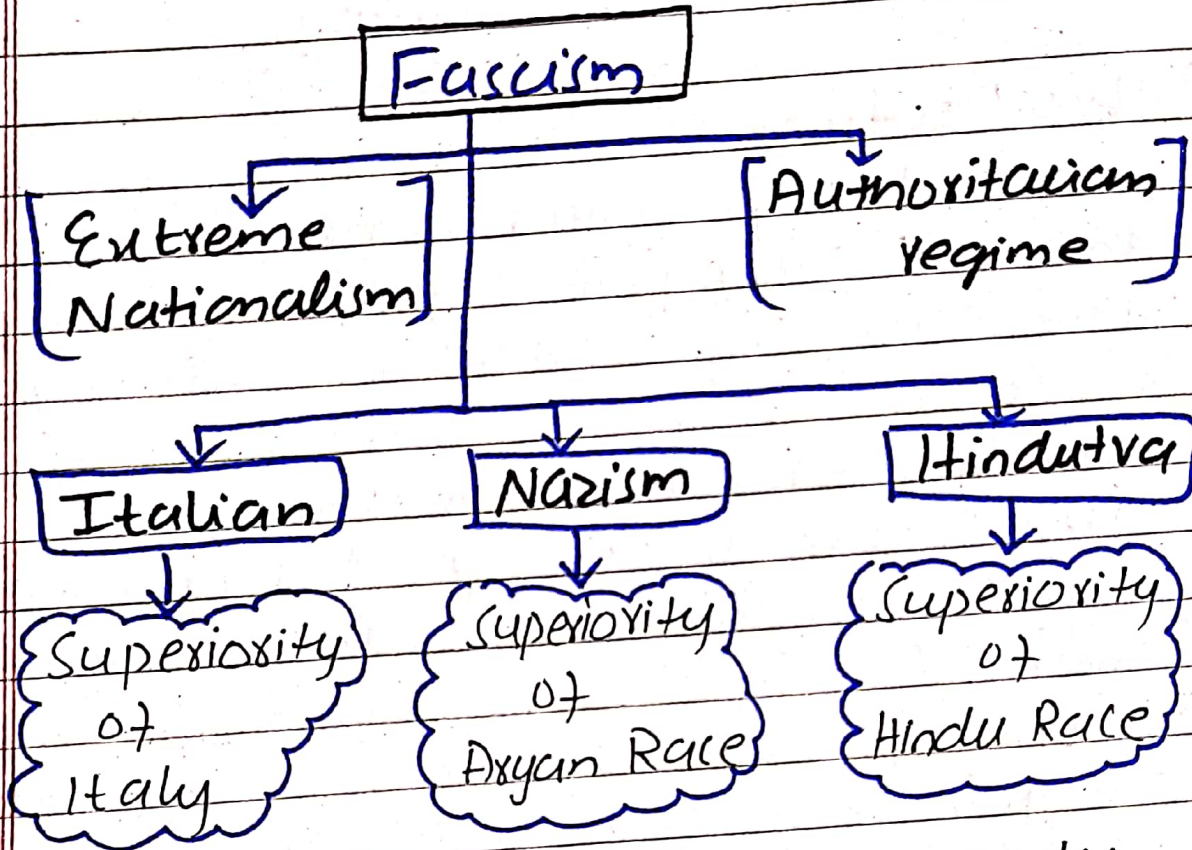 Fascism
Extreme
Nationalism
Authoritarian
regime
Italian
Nazism
Hindutva
Superiority
of
Italy
Superiority
of
Aryan Race
Superiority
of
Hindu Race